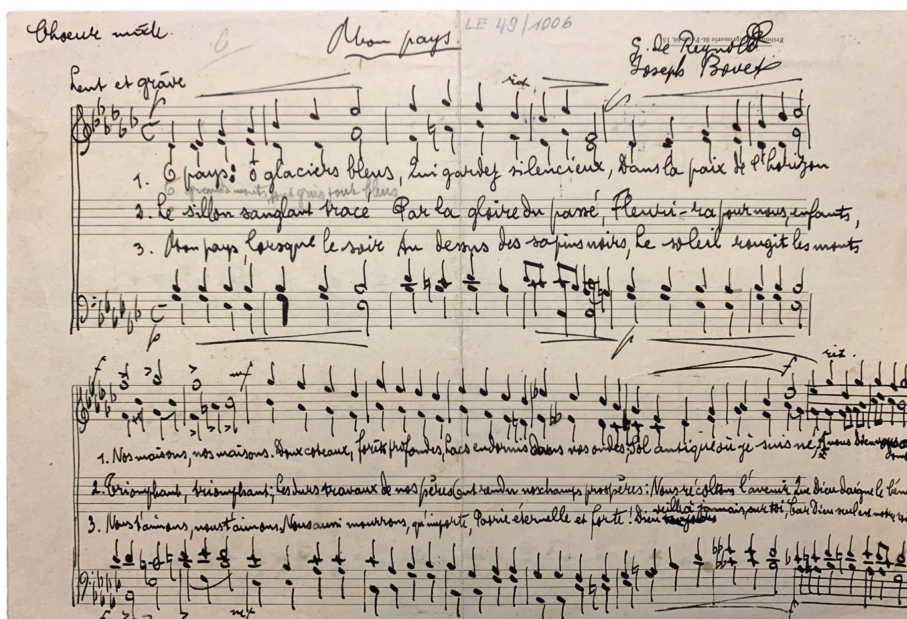 Choeur mixte.
6
Mon pays.
LE 49/1006
G. de Reynold
Joseph Bovet
Lent et grave
rit.
1. O pays! ô glaciers bleus, Qui gardez silencieux, Dans la paix de l'horizon
O grands monts, tout gris tout bleus
2. Le sillon sanglant tracé Par la gloire du passé, Fleuri-ra pour nous, enfants,
3. Mon pays, lorsque le soir Au dessus des sapins noirs, Le soleil rougit les monts
f
mf
f
rit.
1. Nos maisons, nos maisons. Doux coteaux, forêts profondes, Lacs endormis dans vos ondes, Sol antique où je suis né, nous Dieu
2. Triomphant, triomphant; Les durs travaux de nos pères ont rendu nos champs prospères: Nous récoltons l'avenir Que Dieu daigne le bén
3. Nous t'aimons, nous t'aimons. Nous aussi mourrons, qu'importe, Patrie éternelle et forte! Dieu veille à jamais sur toi, Car Dieu seul est notre
f
mf
f